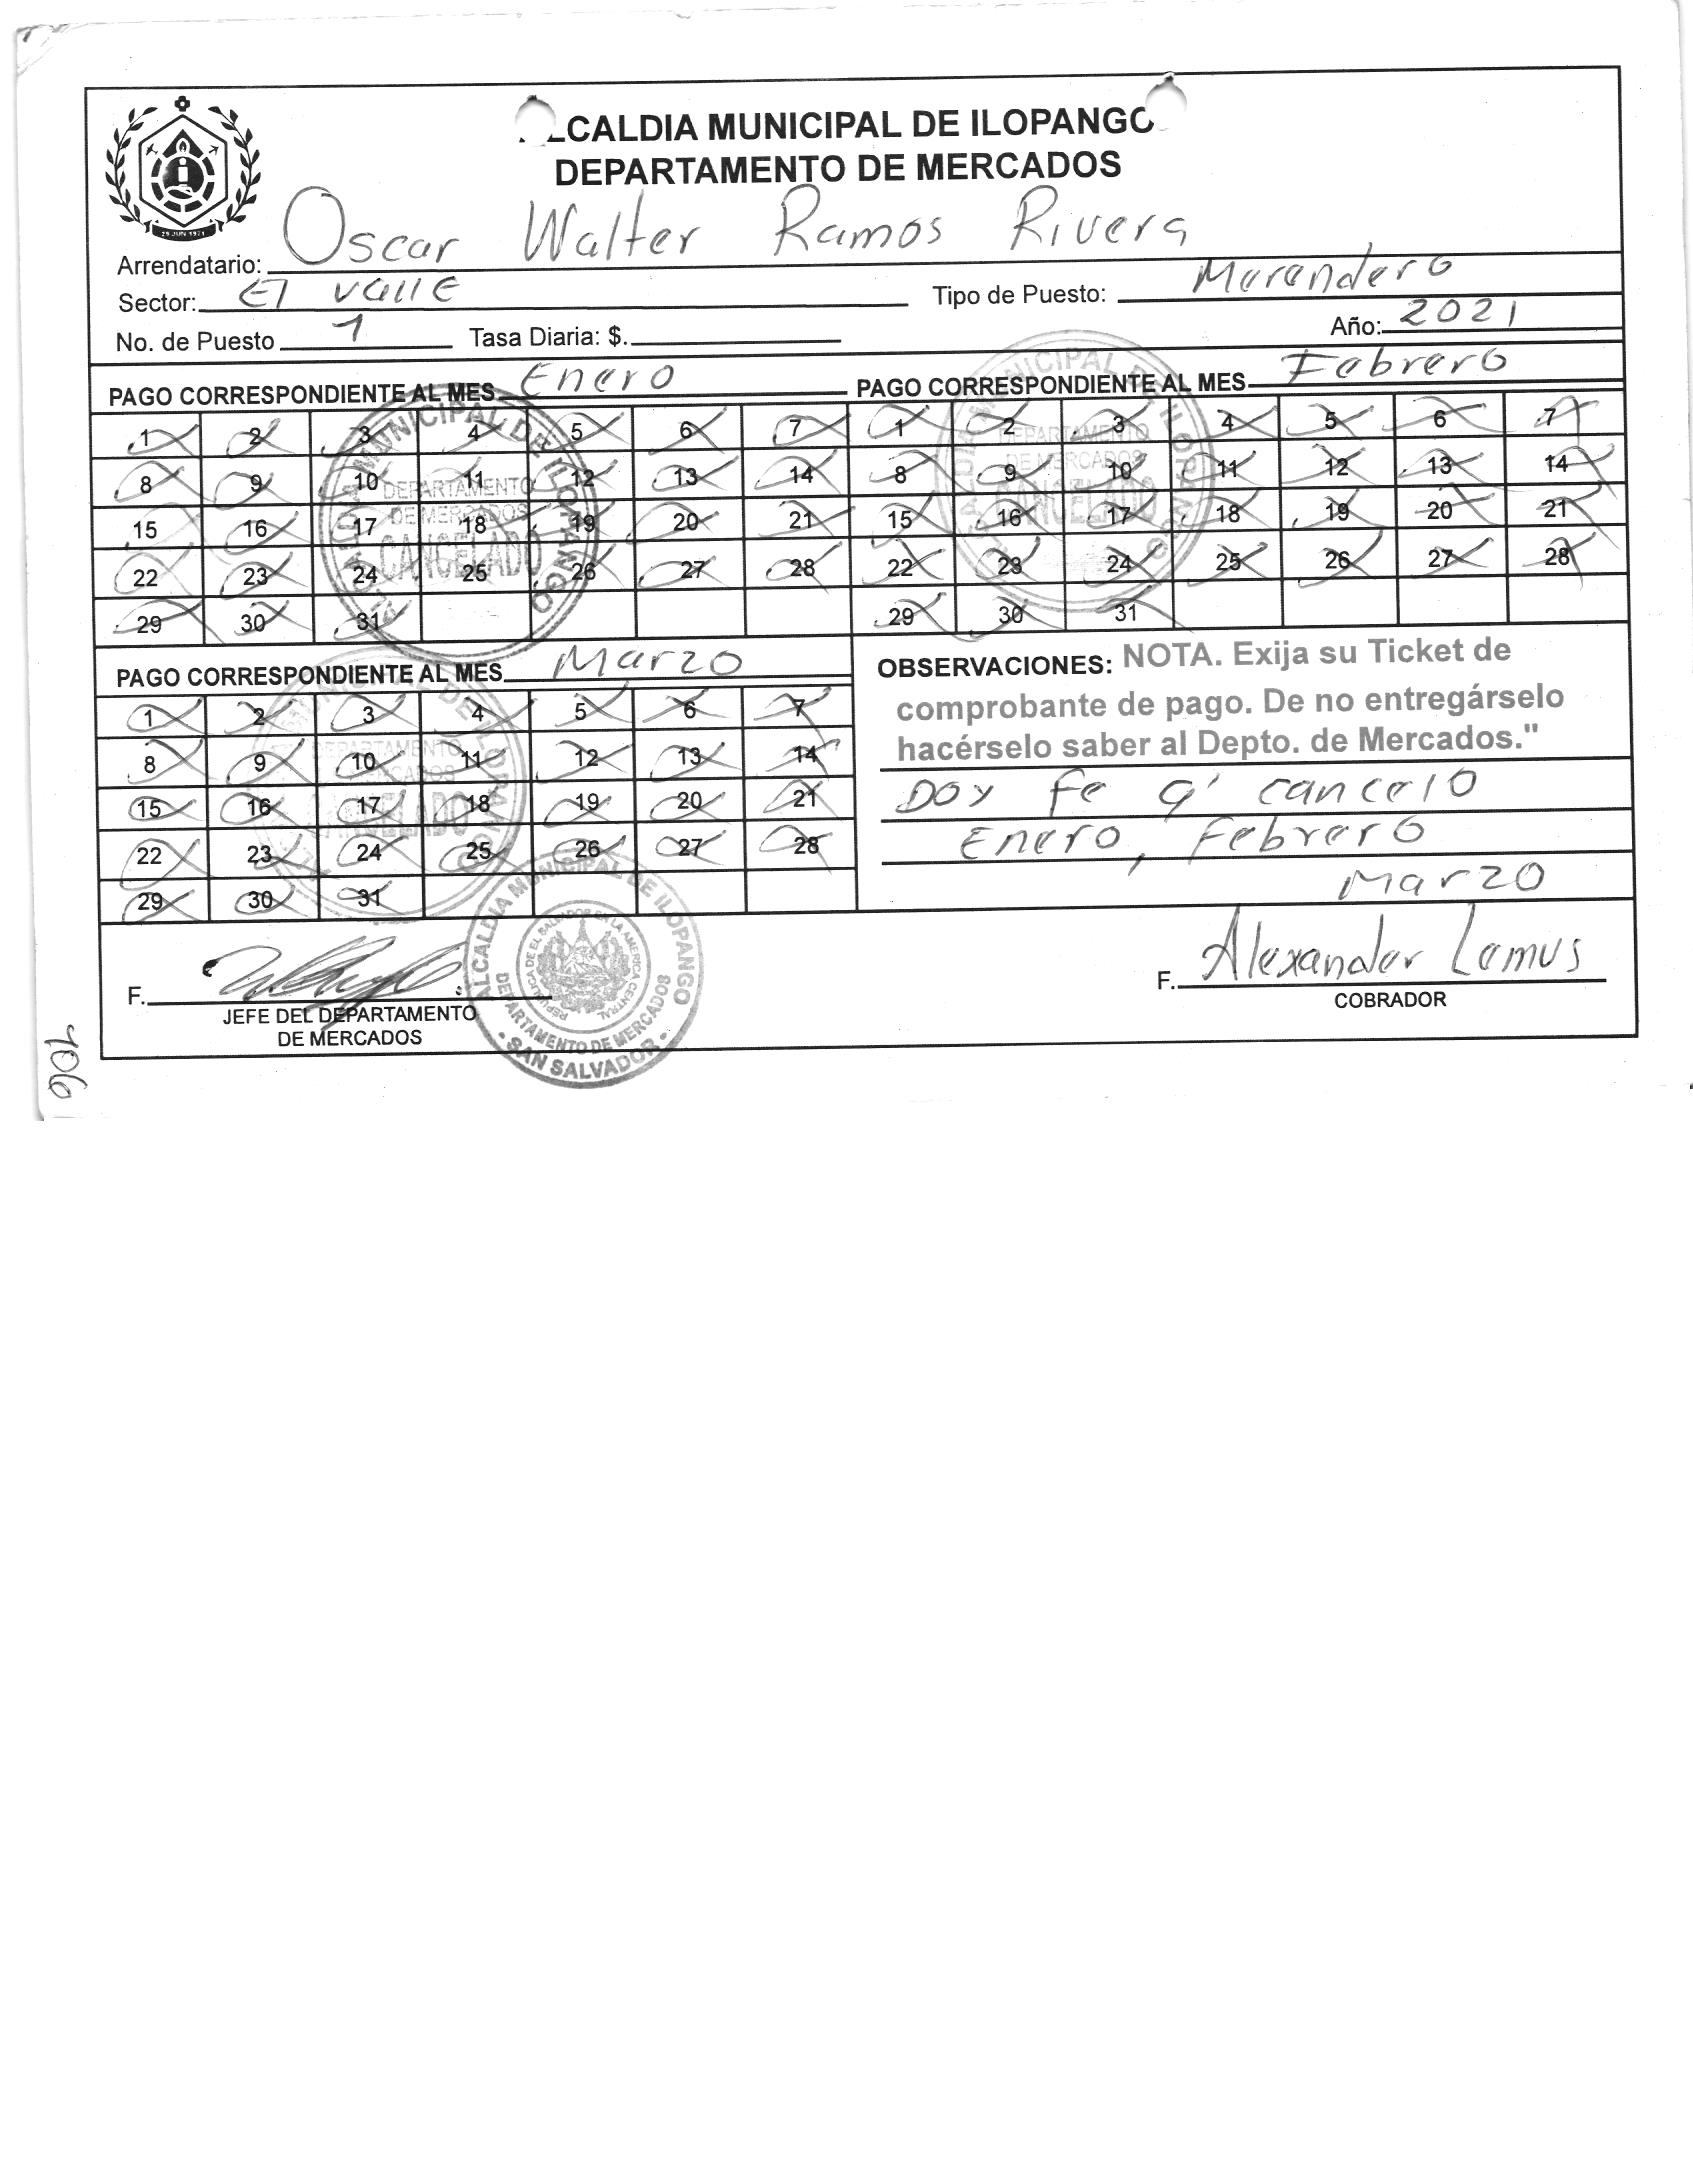 ALCALDIA MUNICIPAL DE ILOPANGO
DEPARTAMENTO DE MERCADOS
29 JUN 1971
Arrendatario: Oscar Walter Ramos Rivera
Sector: El Valle Tipo de Puesto: Merendero
No. de Puesto 1 Tasa Diaria: $. Año: 2021
PAGO CORRESPONDIENTE AL MES Enero
1 2 3 4 5 6 7
8 9 10 11 12 13 14
15 16 17 18 19 20 21
22 23 24 25 26 27 28
29 30 31
ALCALDIA MUNICIPAL DE ILOPANGO
DEPARTAMENTO
DE MERCADOS
CANCELADO
PAGO CORRESPONDIENTE AL MES Febrero
1 2 3 4 5 6 7
8 9 10 11 12 13 14
15 16 17 18 19 20 21
22 23 24 25 26 27 28
29 30 31
ALCALDIA MUNICIPAL DE ILOPANGO
DEPARTAMENTO
DE MERCADOS
CANCELADO
PAGO CORRESPONDIENTE AL MES Marzo
1 2 3 4 5 6 7
8 9 10 11 12 13 14
15 16 17 18 19 20 21
22 23 24 25 26 27 28
29 30 31
ALCALDIA MUNICIPAL DE ILOPANGO
DEPARTAMENTO
DE MERCADOS
CANCELADO
OBSERVACIONES: NOTA. Exija su Ticket de
comprobante de pago. De no entregárselo
hacérselo saber al Depto. de Mercados."
Doy fe q' cancelo
Enero, Febrero
Marzo
F.
JEFE DEL DEPARTAMENTO
DE MERCADOS
ALCALDIA MUNICIPAL DE ILOPANGO
REPUBLICA DE EL SALVADOR EN LA AMERICA CENTRAL
DEPARTAMENTO DE MERCADOS
SAN SALVADOR
F. Alexander Lemus
COBRADOR